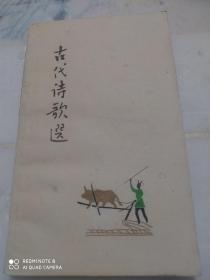 古代诗歌選
REDMI NOTE 8
AI QUAD CAMERA